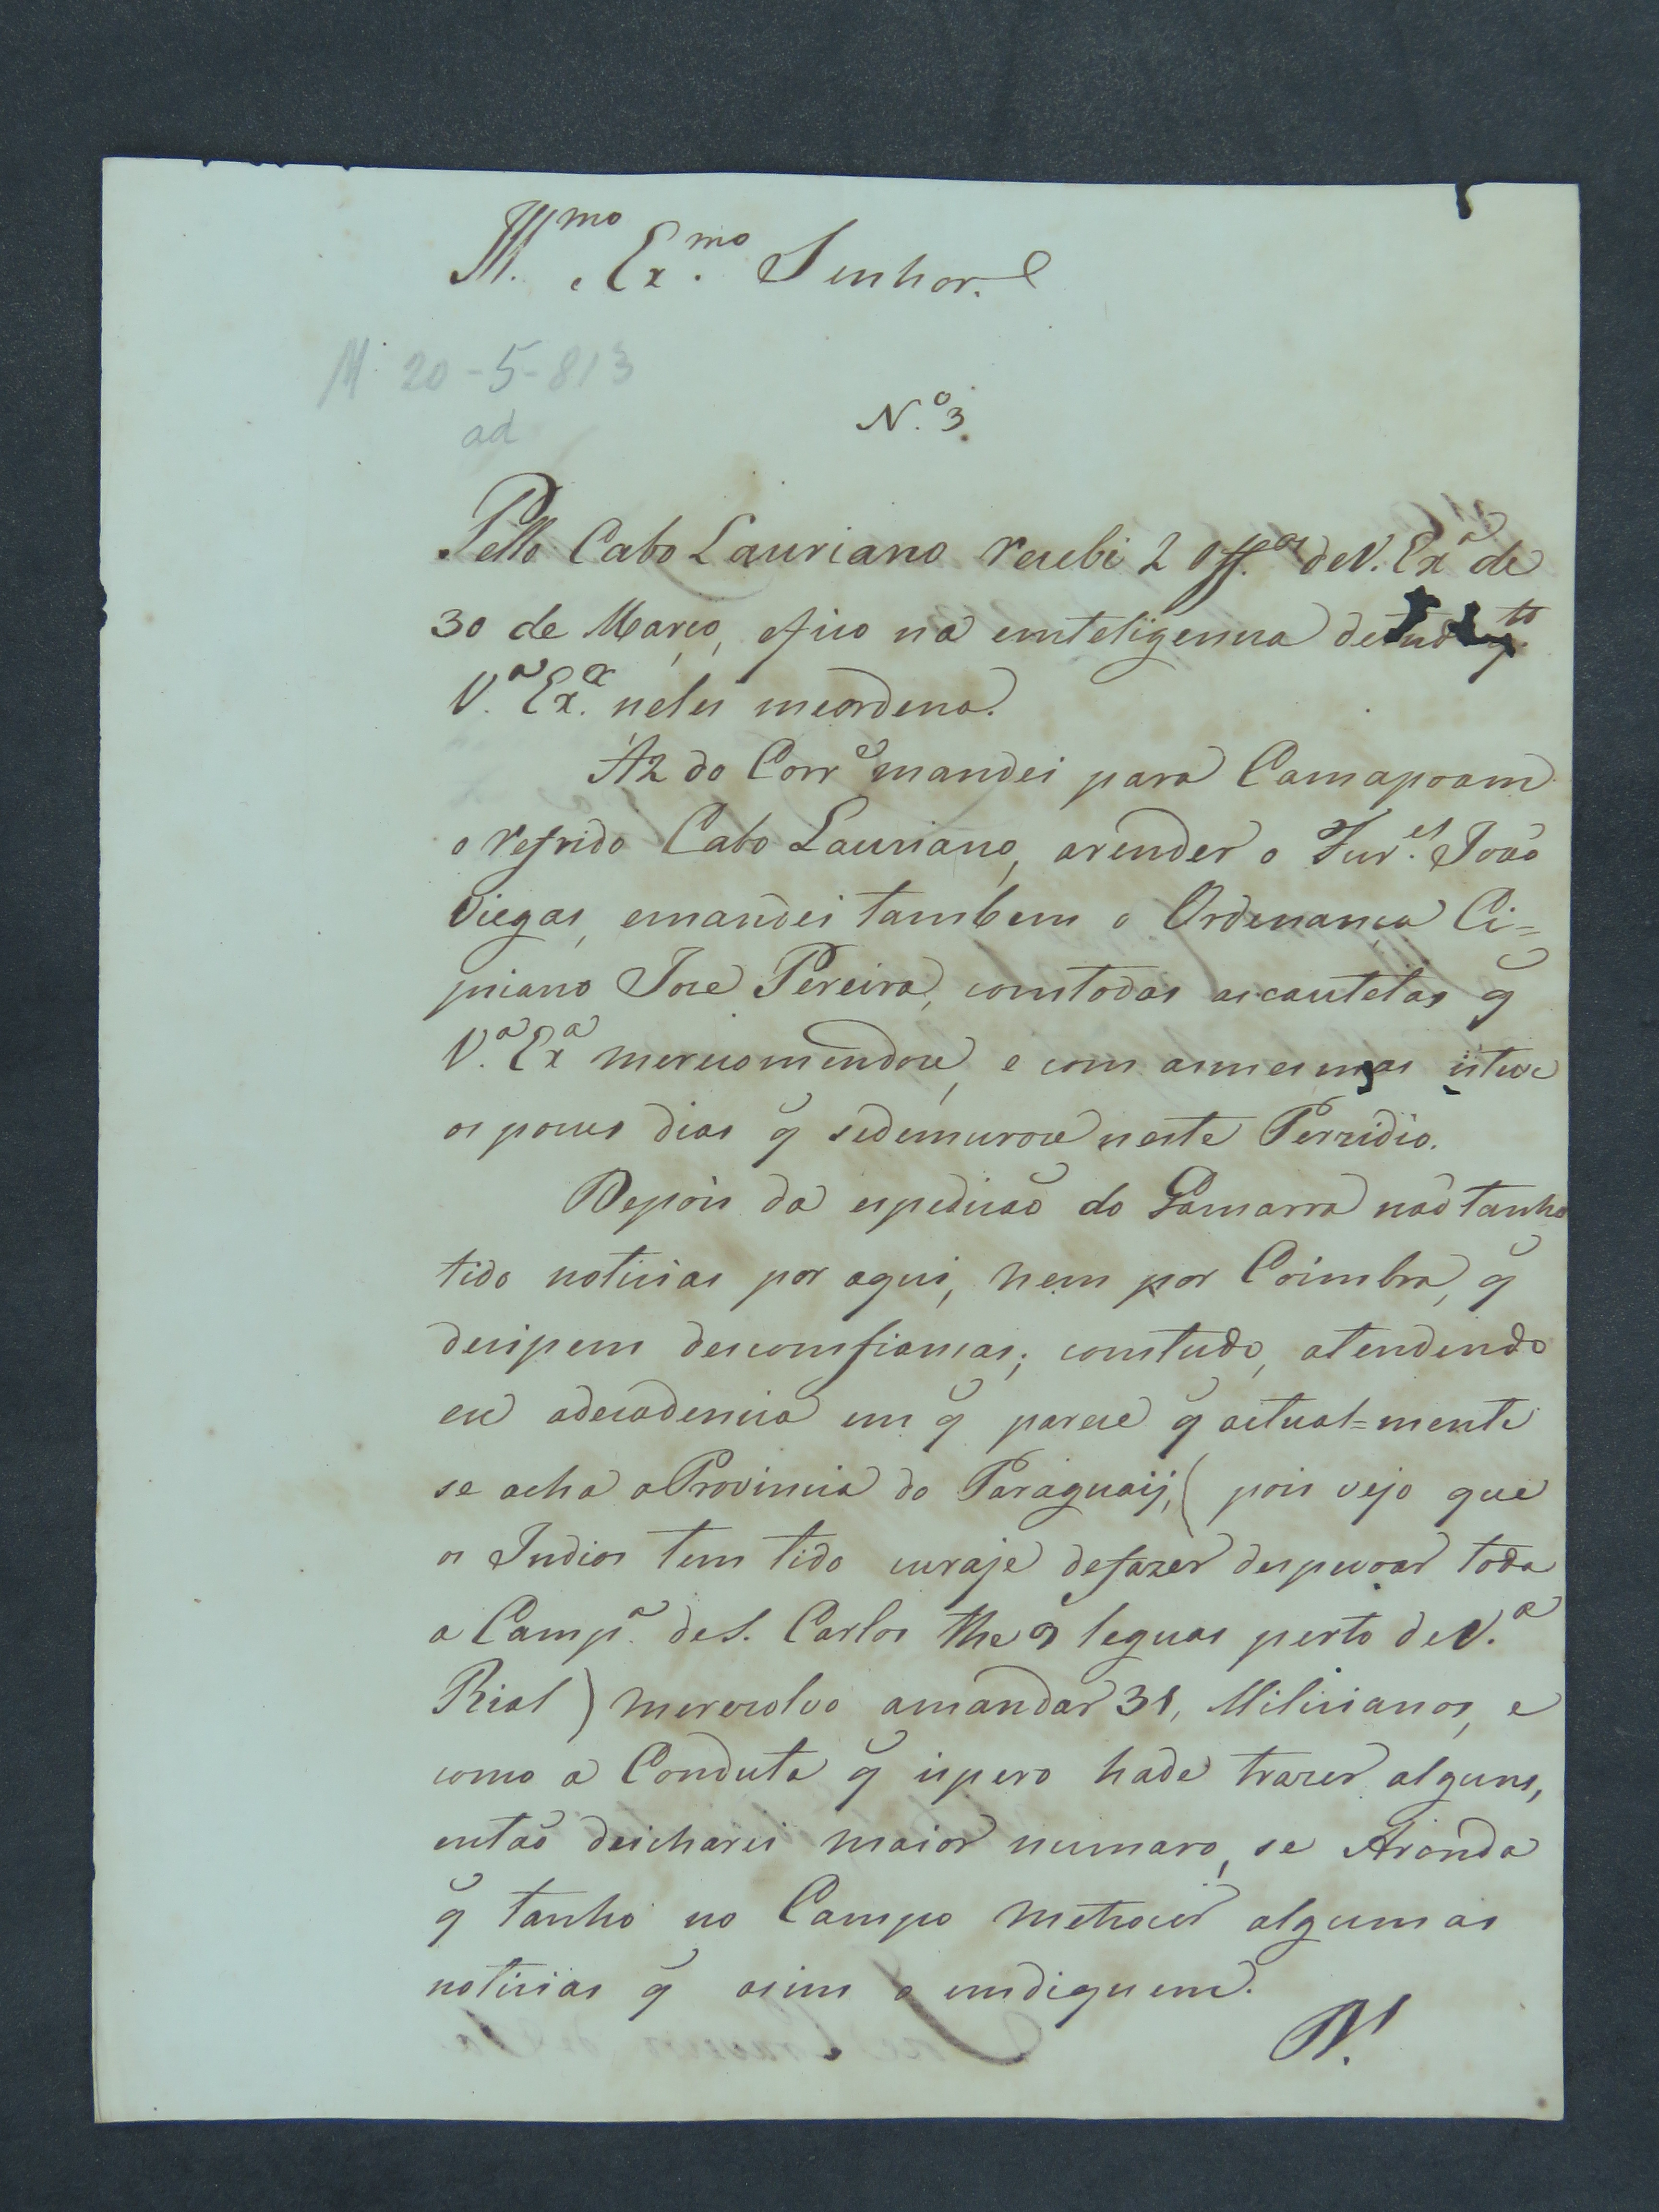 Ill.mo e Ex.mo Senhor.
M 20-5-813
ad
N.o 3.
Pello Cabo Lauriano recebi 2 Off.os de V. Ex.a de
30 de Março, efico na emteligencia de tudo q.to
V.a Ex.a neles meordena.
A 2 do Corr.e mandei para Camapoam
o refrido Cabo Lauriano, arender o Fur.el João
Viegas, emandei tambem o Ordenança Ci=
priano Joze Pereira, comtodas ascautelas q̃
V.a Ex.a merecomendou, e com asmesmas isteve
os poucos dias q̃ sedemurou neste Perzidio.
Depois da espedisão do Gamarra não tanho
tido noticias por aqui, nem por Coimbra, q̃
decipem descomfiansas; comtudo, atendendo
eu adecadencia em q̃ parece q̃ actual=mente
se acha aProvincia do Paraguaÿ, (pois vejo que
os Indios tem tido curaje defazer despuvoar toda
a Camp.a deS. Carlos the 9 leguas perto deV.a
Rial) merezolvo amandar 31, Milicianos, e
como a Conduta q̃ ispero hade trazer alguns,
então deicharei maior numaro, se Aronda
q̃ tanho no Campo metrocer algumas
noticias q̃ asim o emdiquem.